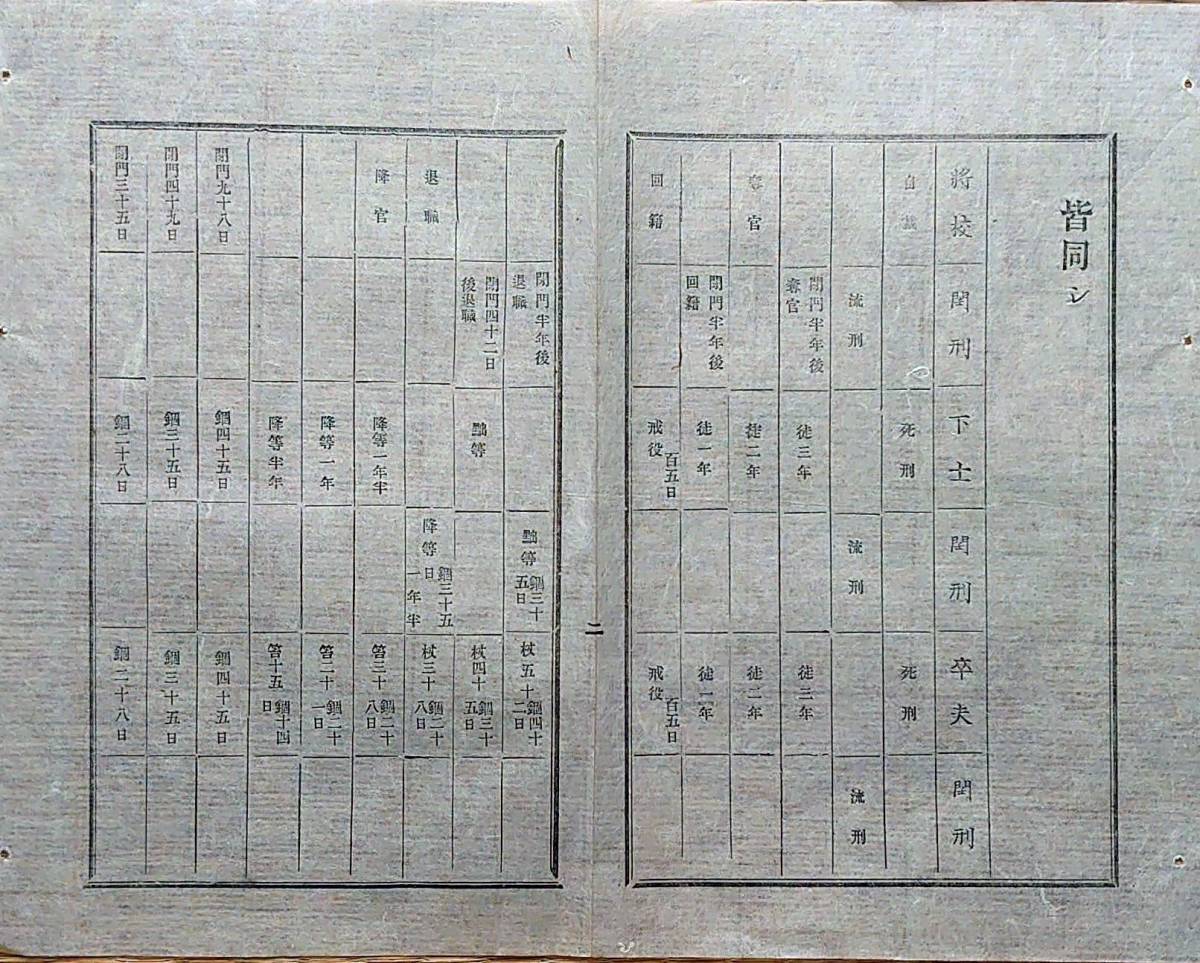 皆同シ
將校 閏刑 下士 閏刑 卒夫 閏刑
自裁 死刑 死刑
流刑 流刑 流刑
閉門半年後
奪官
徒三年 徒三年
奪官 徒二年 徒二年
閉門半年後
回籍
徒一年 徒一年
回籍 戒役百五日 戒役百五日
二
閉門半年後
退職
黜等錮三十五日 杖五十錮四十二日
閉門四十二日
後退職
黜等 杖四十錮三十五日
退職 降等錮三十五日一年半 杖三十錮二十八日
降官 降等一年半 笞三十錮二十八日
降等一年 笞二十錮二十一日
降等半年 笞十五錮十四日
閉門九十八日 錮四十五日 錮四十五日
閉門四十九日 錮三十五日 錮三十五日
閉門三十五日 錮二十八日 錮二十八日